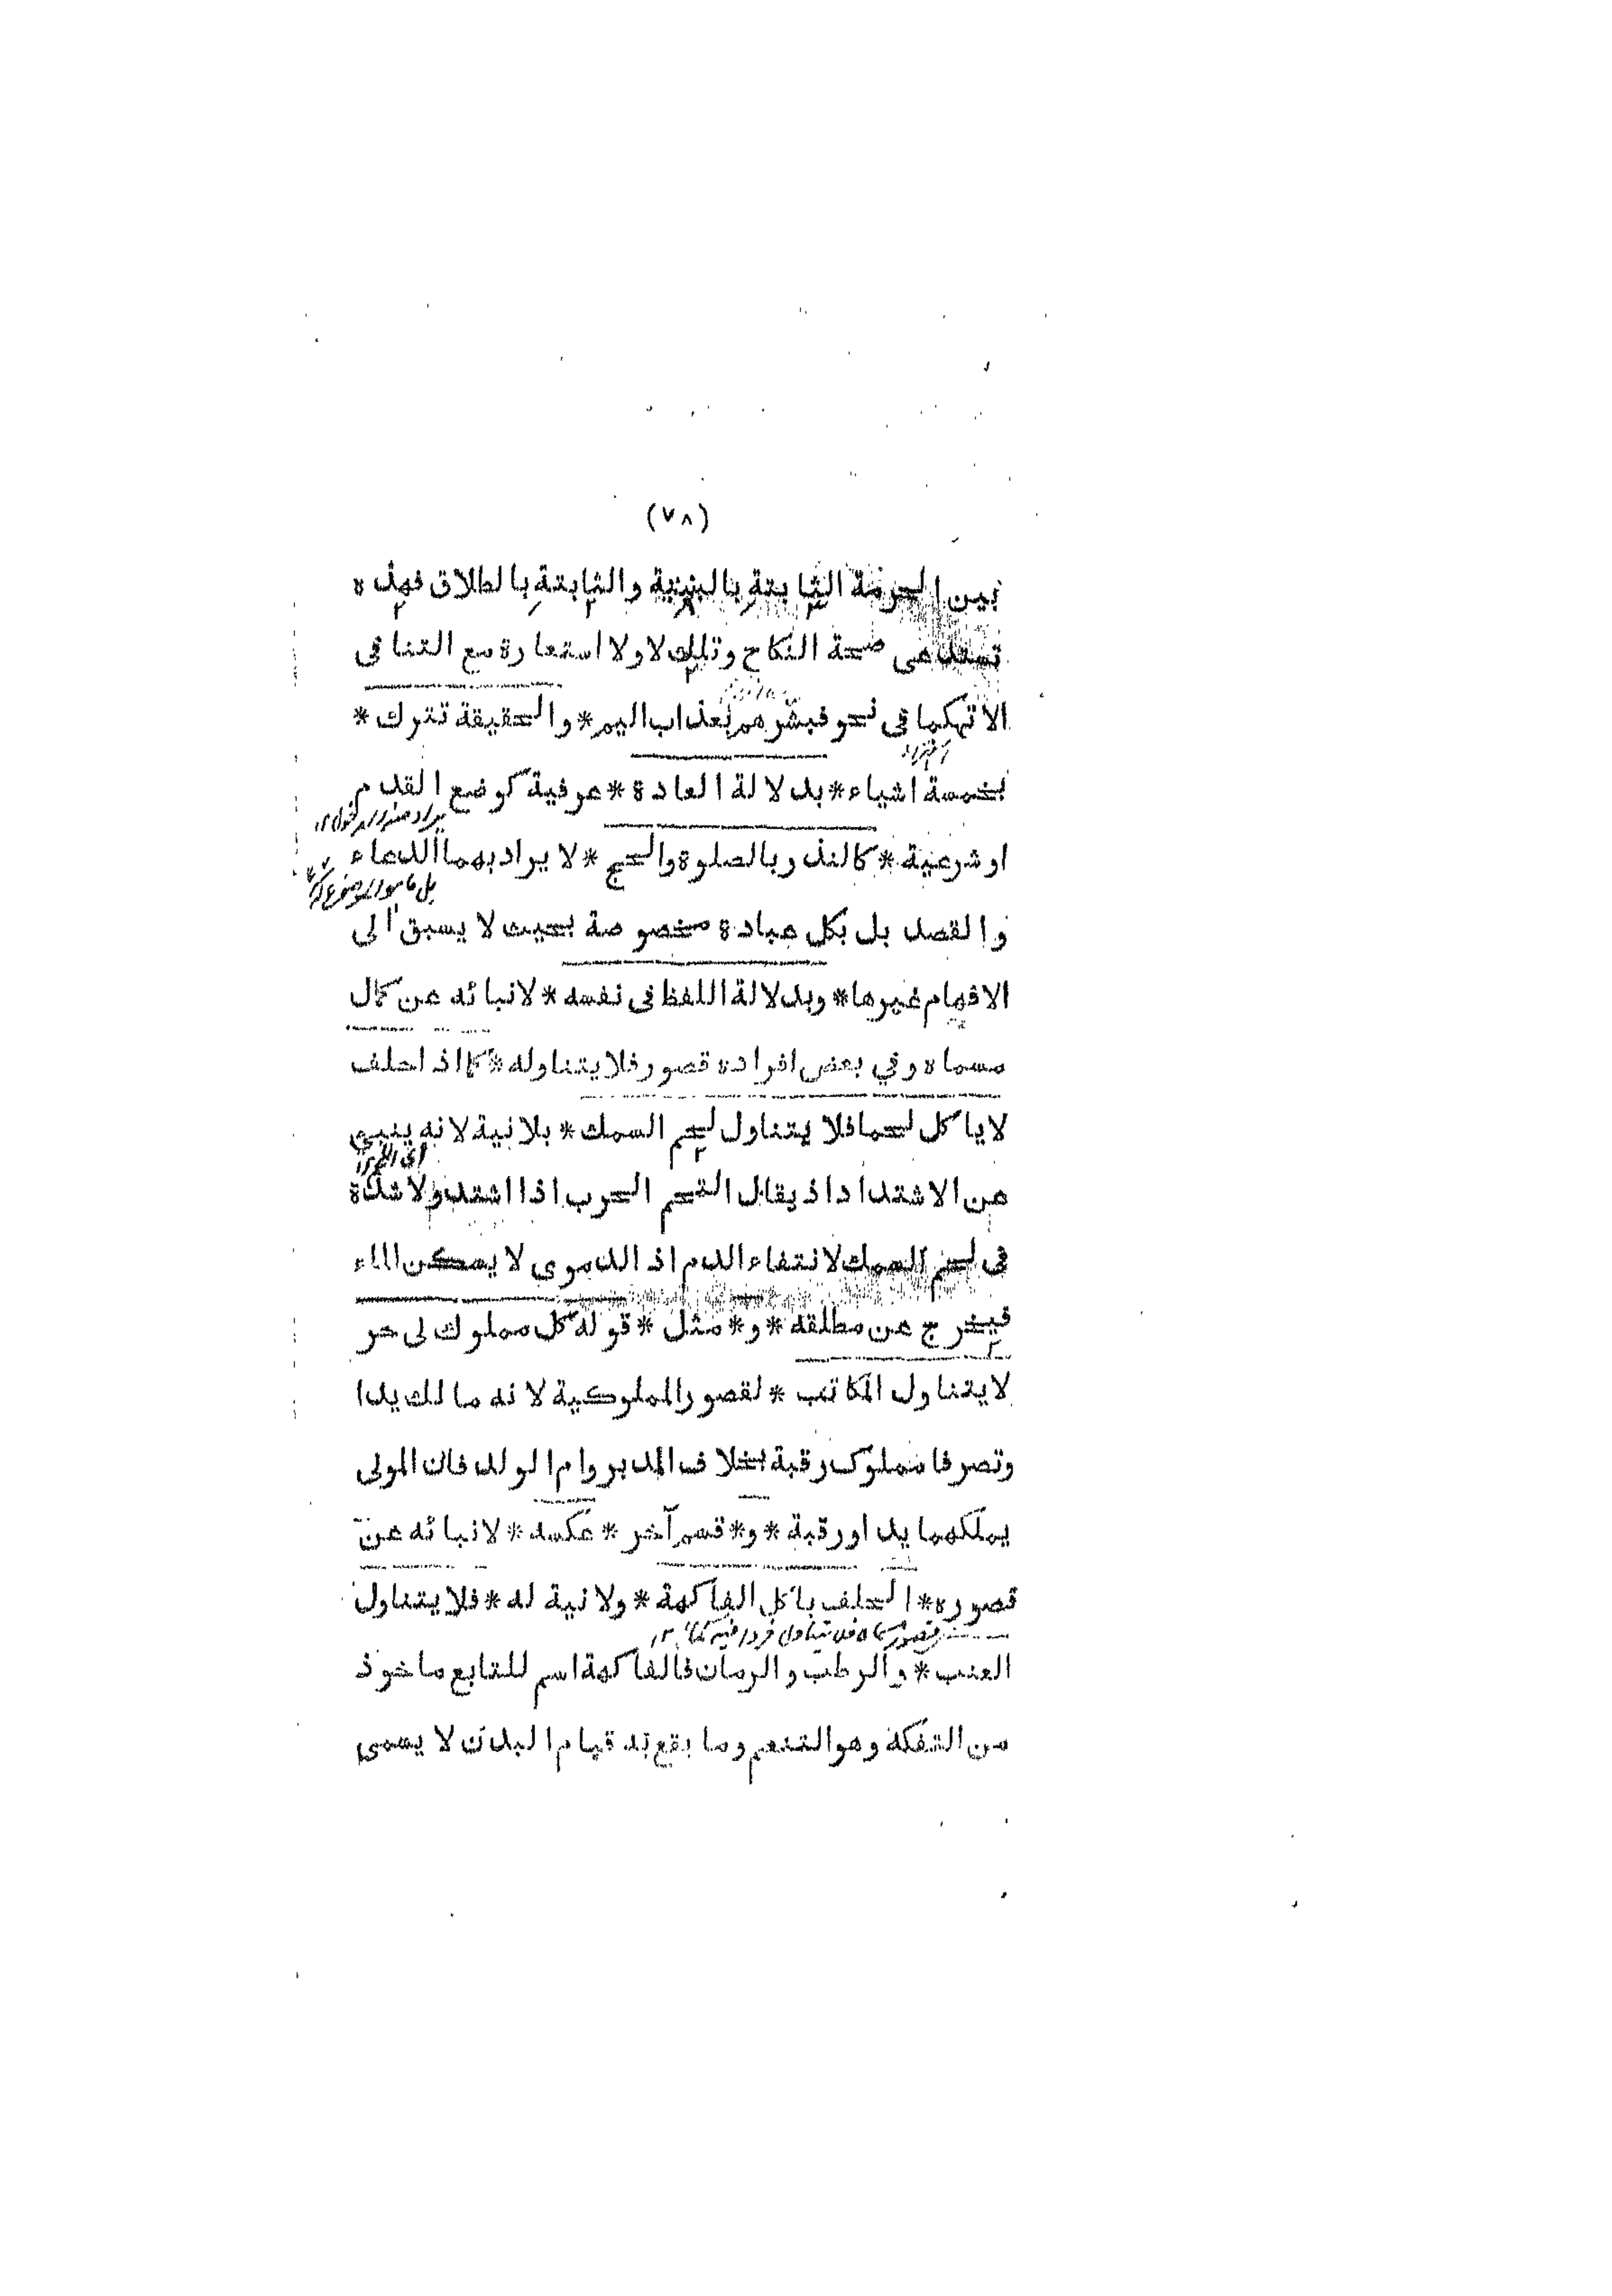 (٧٨)
بين الحرمة الثابتة بالبنتية والثابتة بالطلاق فهذه
تستدعى صحة النكاح وتلك لا ولا استعارة مع التنافى
الا تهكما فى نحو فبشرهم بعذاب اليم * والحقيقة تترك *
بخمسة اشياء * بدلالة العادة * عرفية كوضع القدم
او شرعية * كالنذر بالصلوة والحج * لا يراد بهما الدعاء
والقصد بل بكل عبادة مخصوصة بحيث لا يسبق الى
الافهام غيرها * وبدلالة اللفظ فى نفسه * لانبائه عن كمال
مسماه وفي بعض افراده قصور فلا يتناوله * كما اذا حلف
لا ياكل لحما فلا يتناول لحم السمك * بلا نية لانه ينبئ
عن الاشتداد اذ يقال التحم الحرب اذا اشتد ولا شدة
فى لحم السمك لانتفاء الدم اذ الدموى لا يسكن الماء
فيخرج عن مطلقه * و * مثل * قوله كل مملوك لى حر
لا يتناول المكاتب * لقصور المملوكية لانه مالك يدا
وتصرفا مملوك رقبة بخلاف المدبر وام الولد فان المولى
يملكهما يدا ورقبة * و * قسم آخر * عكسه * لانبائه عن
قصوره * الحلف باكل الفاكهة * ولا نية له * فلا يتناول
العنب * والرطب والرمان فالفاكهة اسم للتابع ماخوذ
من التفكه وهو التنعم وما يقع به قيام البدن لا يسمى